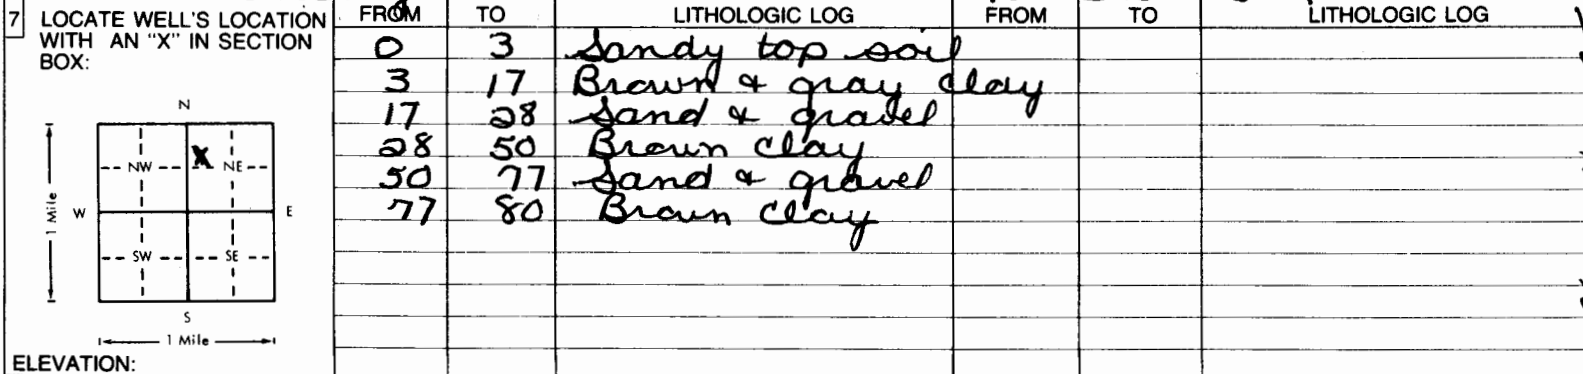 7 LOCATE WELL'S LOCATION WITH AN "X" IN SECTION BOX:
N
NW X NE
W E
1 Mile
SW SE
S
1 Mile
ELEVATION:
FROM TO LITHOLOGIC LOG FROM TO LITHOLOGIC LOG
0 3 Sandy top soil
3 17 Brown & gray clay
17 28 Sand & gravel
28 50 Brown clay
50 77 Sand & gravel
77 80 Brown clay